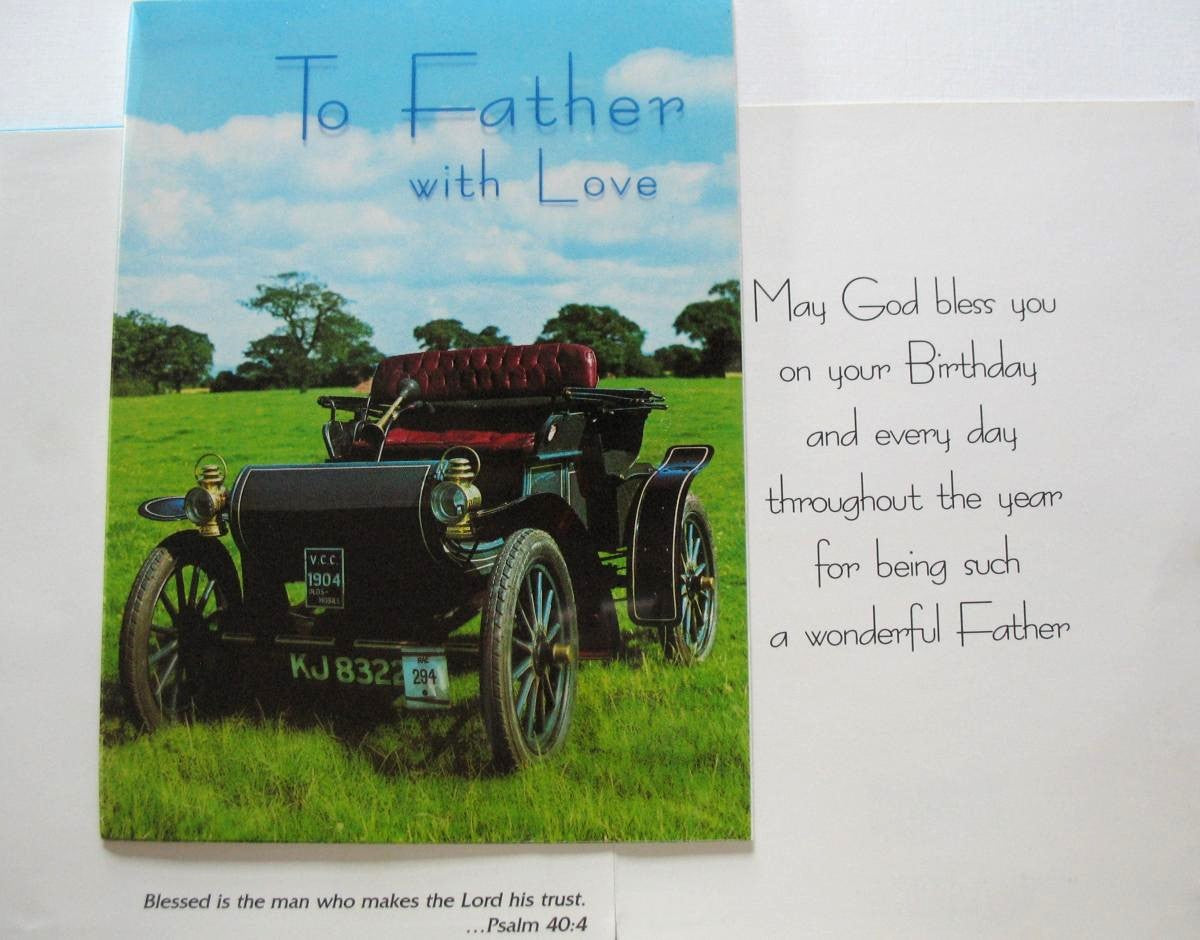 To Father
with Love
V.C.C.
1904
OLDS-
MOBILE
KJ 8322
RAC
294
May God bless you
on your Birthday
and every day
throughout the year
for being such
a wonderful Father
Blessed is the man who makes the Lord his trust.
...Psalm 40:4